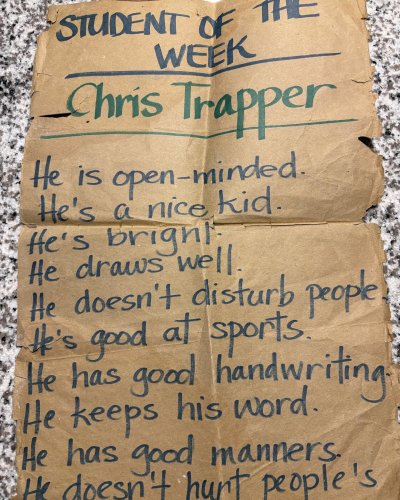 STUDENT OF THE
WEEK
Chris Trapper
He is open-minded.
He's a nice kid.
He's bright.
He draws well.
He doesn't disturb people.
He's good at sports.
He has good handwriting.
He keeps his word.
He has good manners.
He doesn't hurt people's